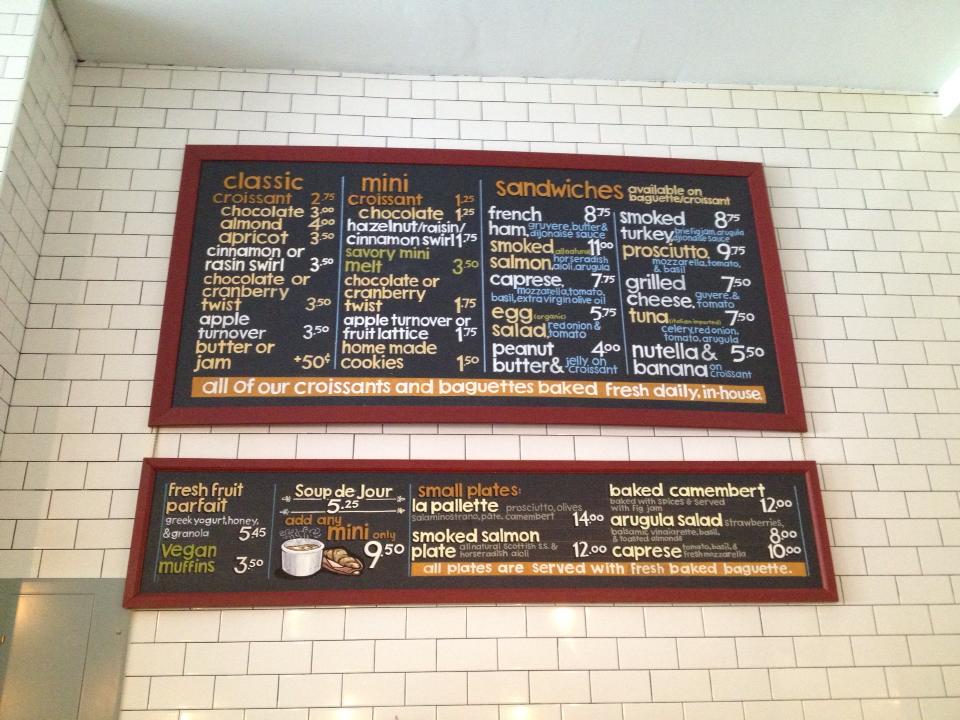 classic
croissant 2.75
chocolate 3.00
almond 4.00
apricot 3.50
cinnamon or
rasin swirl 3.50
chocolate or
cranberry
twist 3.50
apple
turnover 3.50
butter or
jam +50¢
mini
croissant 1.25
chocolate 1.25
hazelnut/raisin/
cinnamon swirl 1.75
savory mini
melt 3.50
chocolate or
cranberry
twist 1.75
apple turnover or
fruit lattice 1.75
home made
cookies 1.50
sandwiches available on
baguette/croissant
french 8.75
ham, gruyere, butter &
dijonaise sauce
smoked all natural 11.00
salmon, horseradish
aioli, arugula
caprese, 7.75
mozzarella, tomato,
basil, extra virgin olive oil
egg (organic) 5.75
salad, red onion &
tomato
peanut 4.00
butter & jelly on
croissant
smoked 8.75
turkey, brie fig jam, arugula
dijonaise sauce
prosciutto, 9.75
mozzarella, tomato,
& basil
grilled 7.50
cheese, guyere, &
tomato
tuna (italian imported) 7.50
celery, red onion,
tomato, arugula
nutella & 5.50
banana on
croissant
all of our croissants and baguettes baked fresh daily, in-house.
fresh fruit
parfait
greek yogurt, honey,
& granola 5.45
vegan
muffins 3.50
Soup de Jour
5.25
add any
mini only
9.50
small plates:
la pallette prosciutto, olives
salaminostrano, pate, camembert
14.00
smoked salmon
plate all natural scottish s.s. &
horseradish aioli 12.00
baked camembert
baked with spices & served
with fig jam 12.00
arugula salad strawberries,
balsamic vinaigrette, basil,
& toasted almonds 8.00
caprese tomato, basil, &
fresh mozzarella 10.00
all plates are served with fresh baked baguette.